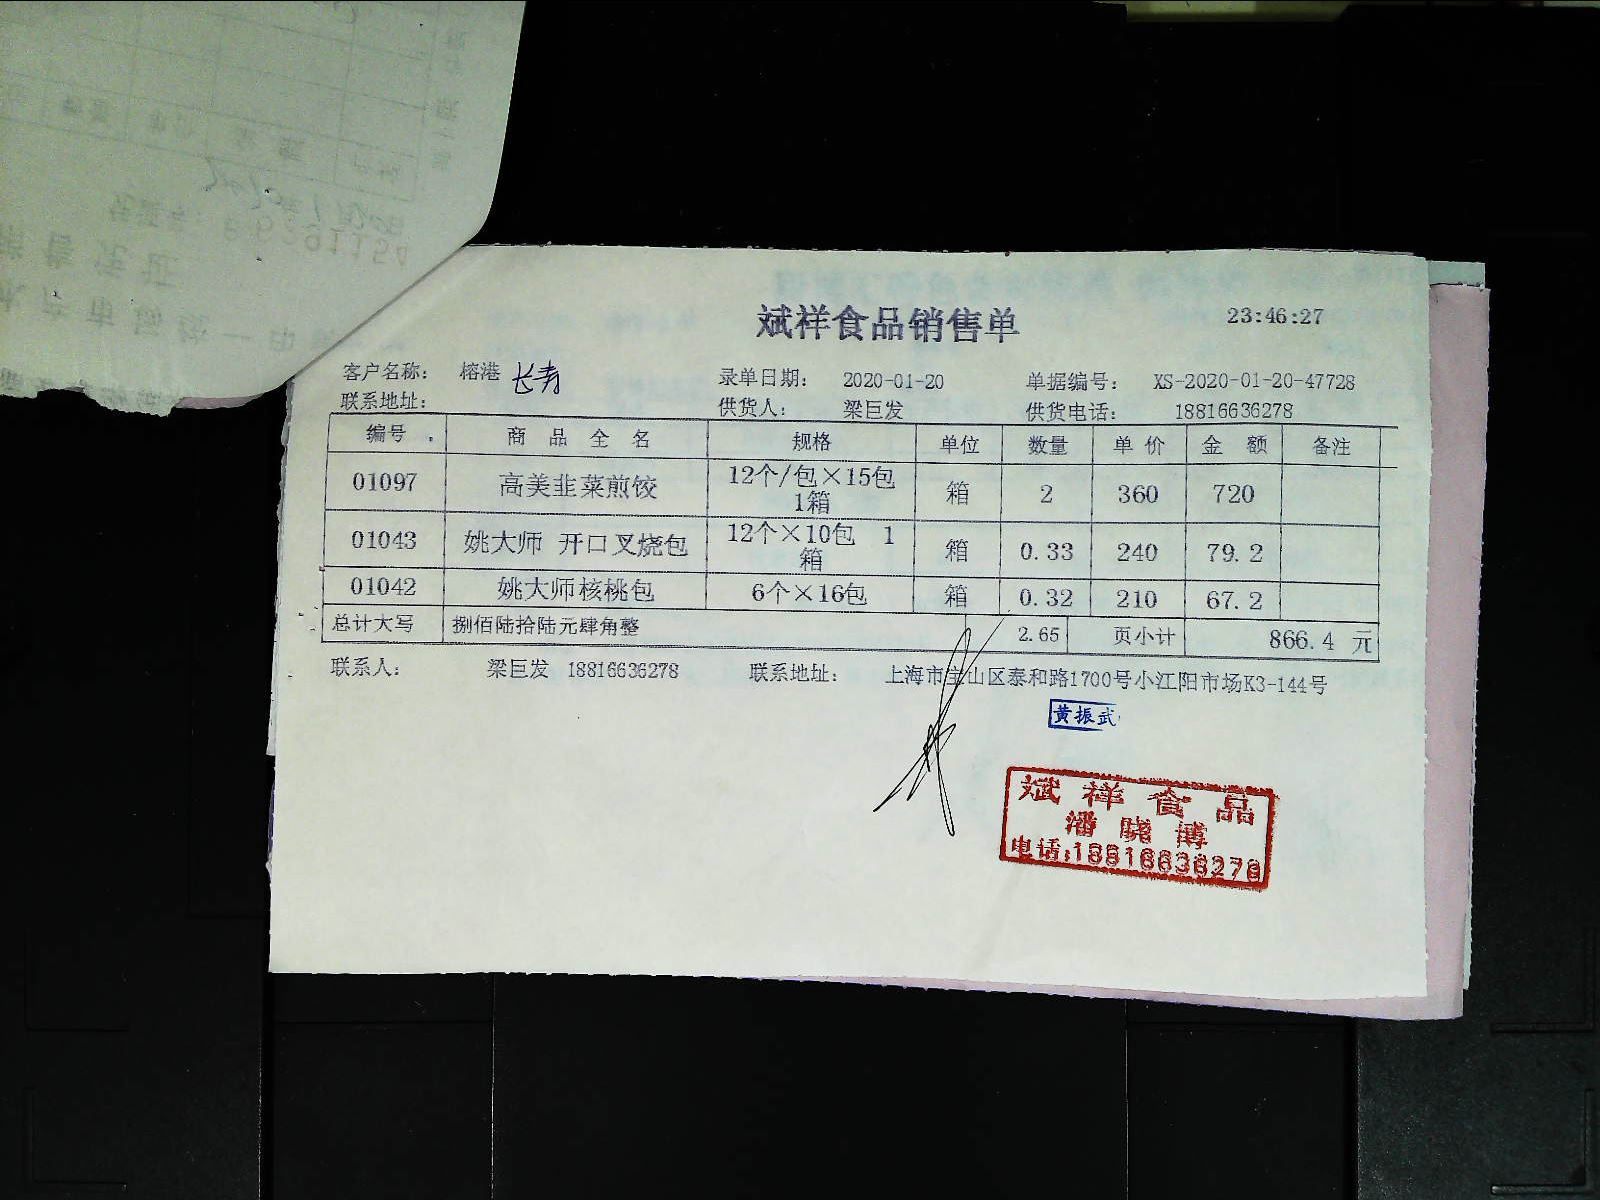 斌祥食品销售单 23:46:27
客户名称： 榕港 长寿 录单日期： 2020-01-20 单据编号： XS-2020-01-20-47728
联系地址： 供货人： 梁巨发 供货电话： 18816636278
编号 商品全名 规格 单位 数量 单价 金额 备注
01097 高美韭菜煎饺 12个/包×15包 1箱 箱 2 360 720
01043 姚大师 开口叉烧包 12个×10包 1箱 箱 0.33 240 79.2
01042 姚大师核桃包 6个×16包 箱 0.32 210 67.2
总计大写 捌佰陆拾陆元肆角整 2.65 页小计 866.4 元
联系人： 梁巨发 18816636278 联系地址： 上海市宝山区泰和路1700号小江阳市场K3-144号
黄振武
斌祥食品
潘晓博
电话:18816636278